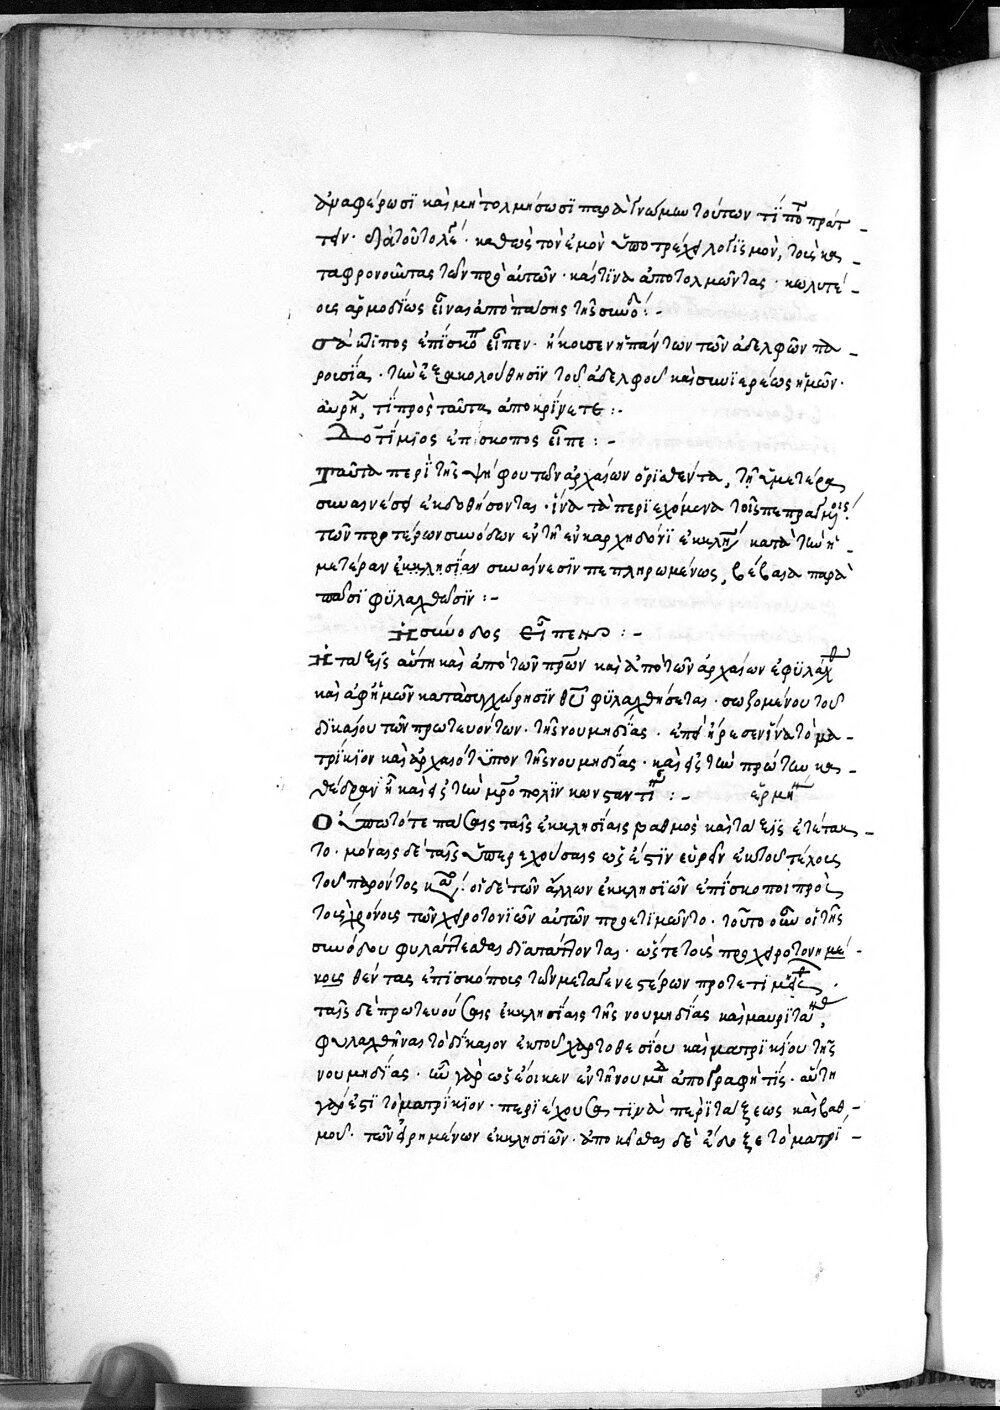 ἀναφέρωσϊ καὶ μὴ τολμήσωσϊ παρὰ γνώμην τούτων τί ποτε πράτ-
τειν. διὰ τοῦτο λέγει. καθὼς τὸν ἐμὸν ὑποτρέχει λογϊσμόν, τοὺς κα-
ταφρονοῦντας τῶν πρὸ αὐτῶν. καί τϊνα ἀποτολμῶντας. κωλυτέ-
οις ἁρμοδίως εἶναι ἀπὸ πάσης τῆς συνόδου :-
ἐπίσκοπος εἶπεν. ἤκουσεν ἡ πάντων τῶν ἀδελφῶν πα-
ρουσία. τὴν ἐξακολούθησϊν τοῦ ἀδελφοῦ καὶ συνϊερέως ἡμῶν.
αὐρηλίου, τί πρὸς ταῦτα ἀποκρίνετε :-
Δατίμϊος ἐπίσκοπος εἶπε :-
Τὰ αὐτὰ περὶ τῆς ψήφου τῶν ἀρχαίων ὁρϊσθέντα, τῇ ἡμετέρᾳ
συναινέσει ἐκδοθήσονται. ἵνα τὰ περϊεχόμενα τοῖς πεπραγμένοις
τῶν προτέρων συνόδων ἐν τῇ ἐν καρχηδόνϊ ἐκκλησίᾳ κατὰ τὴν ἡ-
μετέραν ἐκκλησίαν συναίνεσϊν πεπληρωμένως, βέβαια παρὰ
πᾶσϊ φϋλαχθῶσϊν :-
Ἡ σύνοδος εἶπεν :-
Ἡ τάξϊς αὕτη καὶ ἀπὸ τῶν πατέρων καὶ ἀπὸ τῶν ἀρχαίων ἐφϋλάχθη
καὶ ἀφ' ἡμῶν κατὰ συγχώρησϊν θεοῦ φϋλαχθήσεται. σωζομένου τοῦ
δϊκαίου τῶν πρωτευόντων. τῆς νουμηδίας. ἐπεὶ ἤρεσεν ἵνα τὸ μα-
τρίκϊον καὶ ἀρχαιότϋπον τῆς νουμηδίας. καὶ εἰς τὴν πρώτην κα-
θέδραν ᾖ καὶ εἰς τὴν μητρόπολϊν κωνσταντίνης :- ἑρμηνεία
Οὔπω τότε πάσαις ταῖς ἐκκλησίαις βαθμὸς καὶ τάξϊς ἐτέτακ-
το. μόναις δὲ ταῖς ὑπερεχούσαις ὡς ἔστϊν εὑρεῖν ἐκ τοῦ τέλους
τοῦ παρόντος κανόνος. οἱ δὲ τῶν ἄλλων ἐκκλησϊῶν ἐπίσκοποι πρὸς
τοὺς χρόνους τῶν χειροτονϊῶν αὐτῶν προετϊμῶντο. τοῦτο οὖν οἱ τῆς
συνόδου φυλάττεσθαι δϊατάττονται. ὥστε τοὺς προχειροτονημέ-
νους θέντας ἐπϊσκόποις τῶν μεταγενεστέρων προτετιμῆσθαι.
ταῖς δὲ πρωτευούσαις ἐκκλησίαις τῆς νουμηδίας καὶ μαυρϊτανίας,
φυλαχθῆναι τὸ δίκαιον ἐκ τοῦ χαρτοθεσίου καὶ ματρϊκίου τῆς
νουμηδίας. ἦν γὰρ ὡς ἔοικεν ἐν τῇ νουμηδίᾳ ἀπογραφή τϊς. αὕτη
γάρ ἐστϊ τὸ ματρίκϊον. περϊέχουσά τϊνα περὶ τάξεως καὶ βαθ-
μοῦ. τῶν εἰρημένων ἐκκλησϊῶν. ἀποκεῖσθαι δὲ ἔδοξε τὸ ματρί-